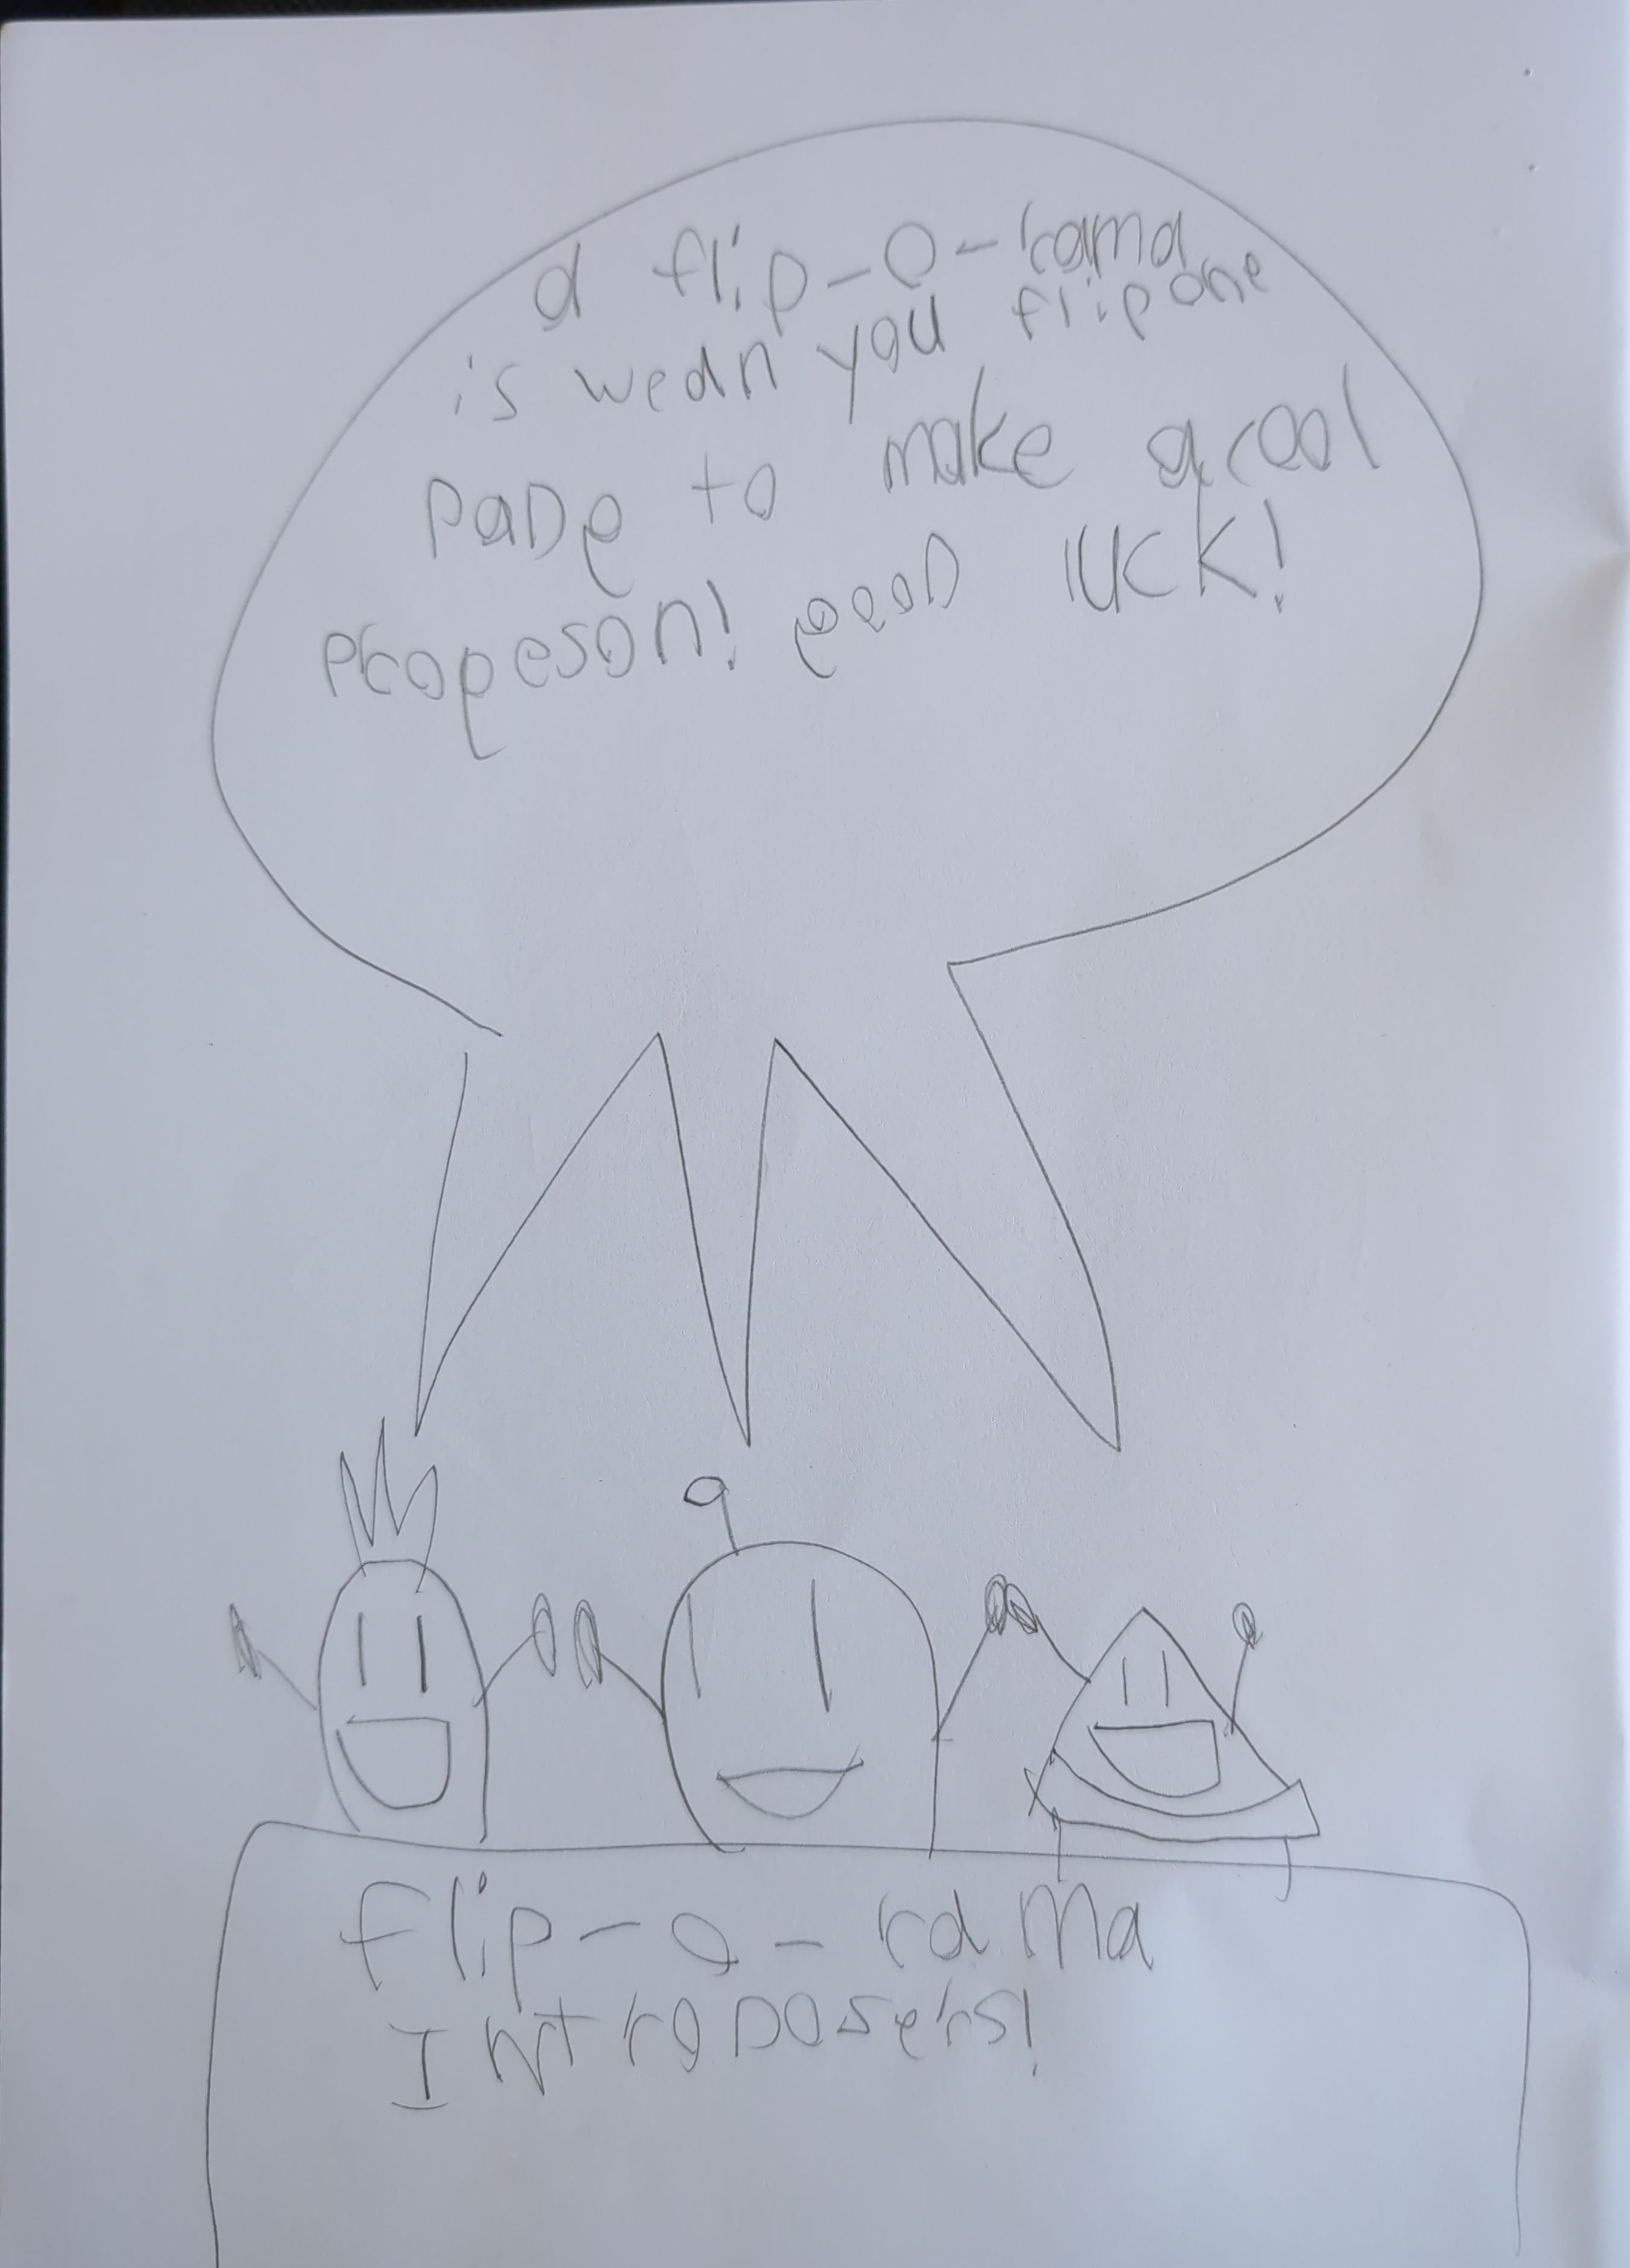 a flip-o-rama
is wedn you flip one
page to make a cool
propeson! good luck!
flip-o-rama
Introdosers!